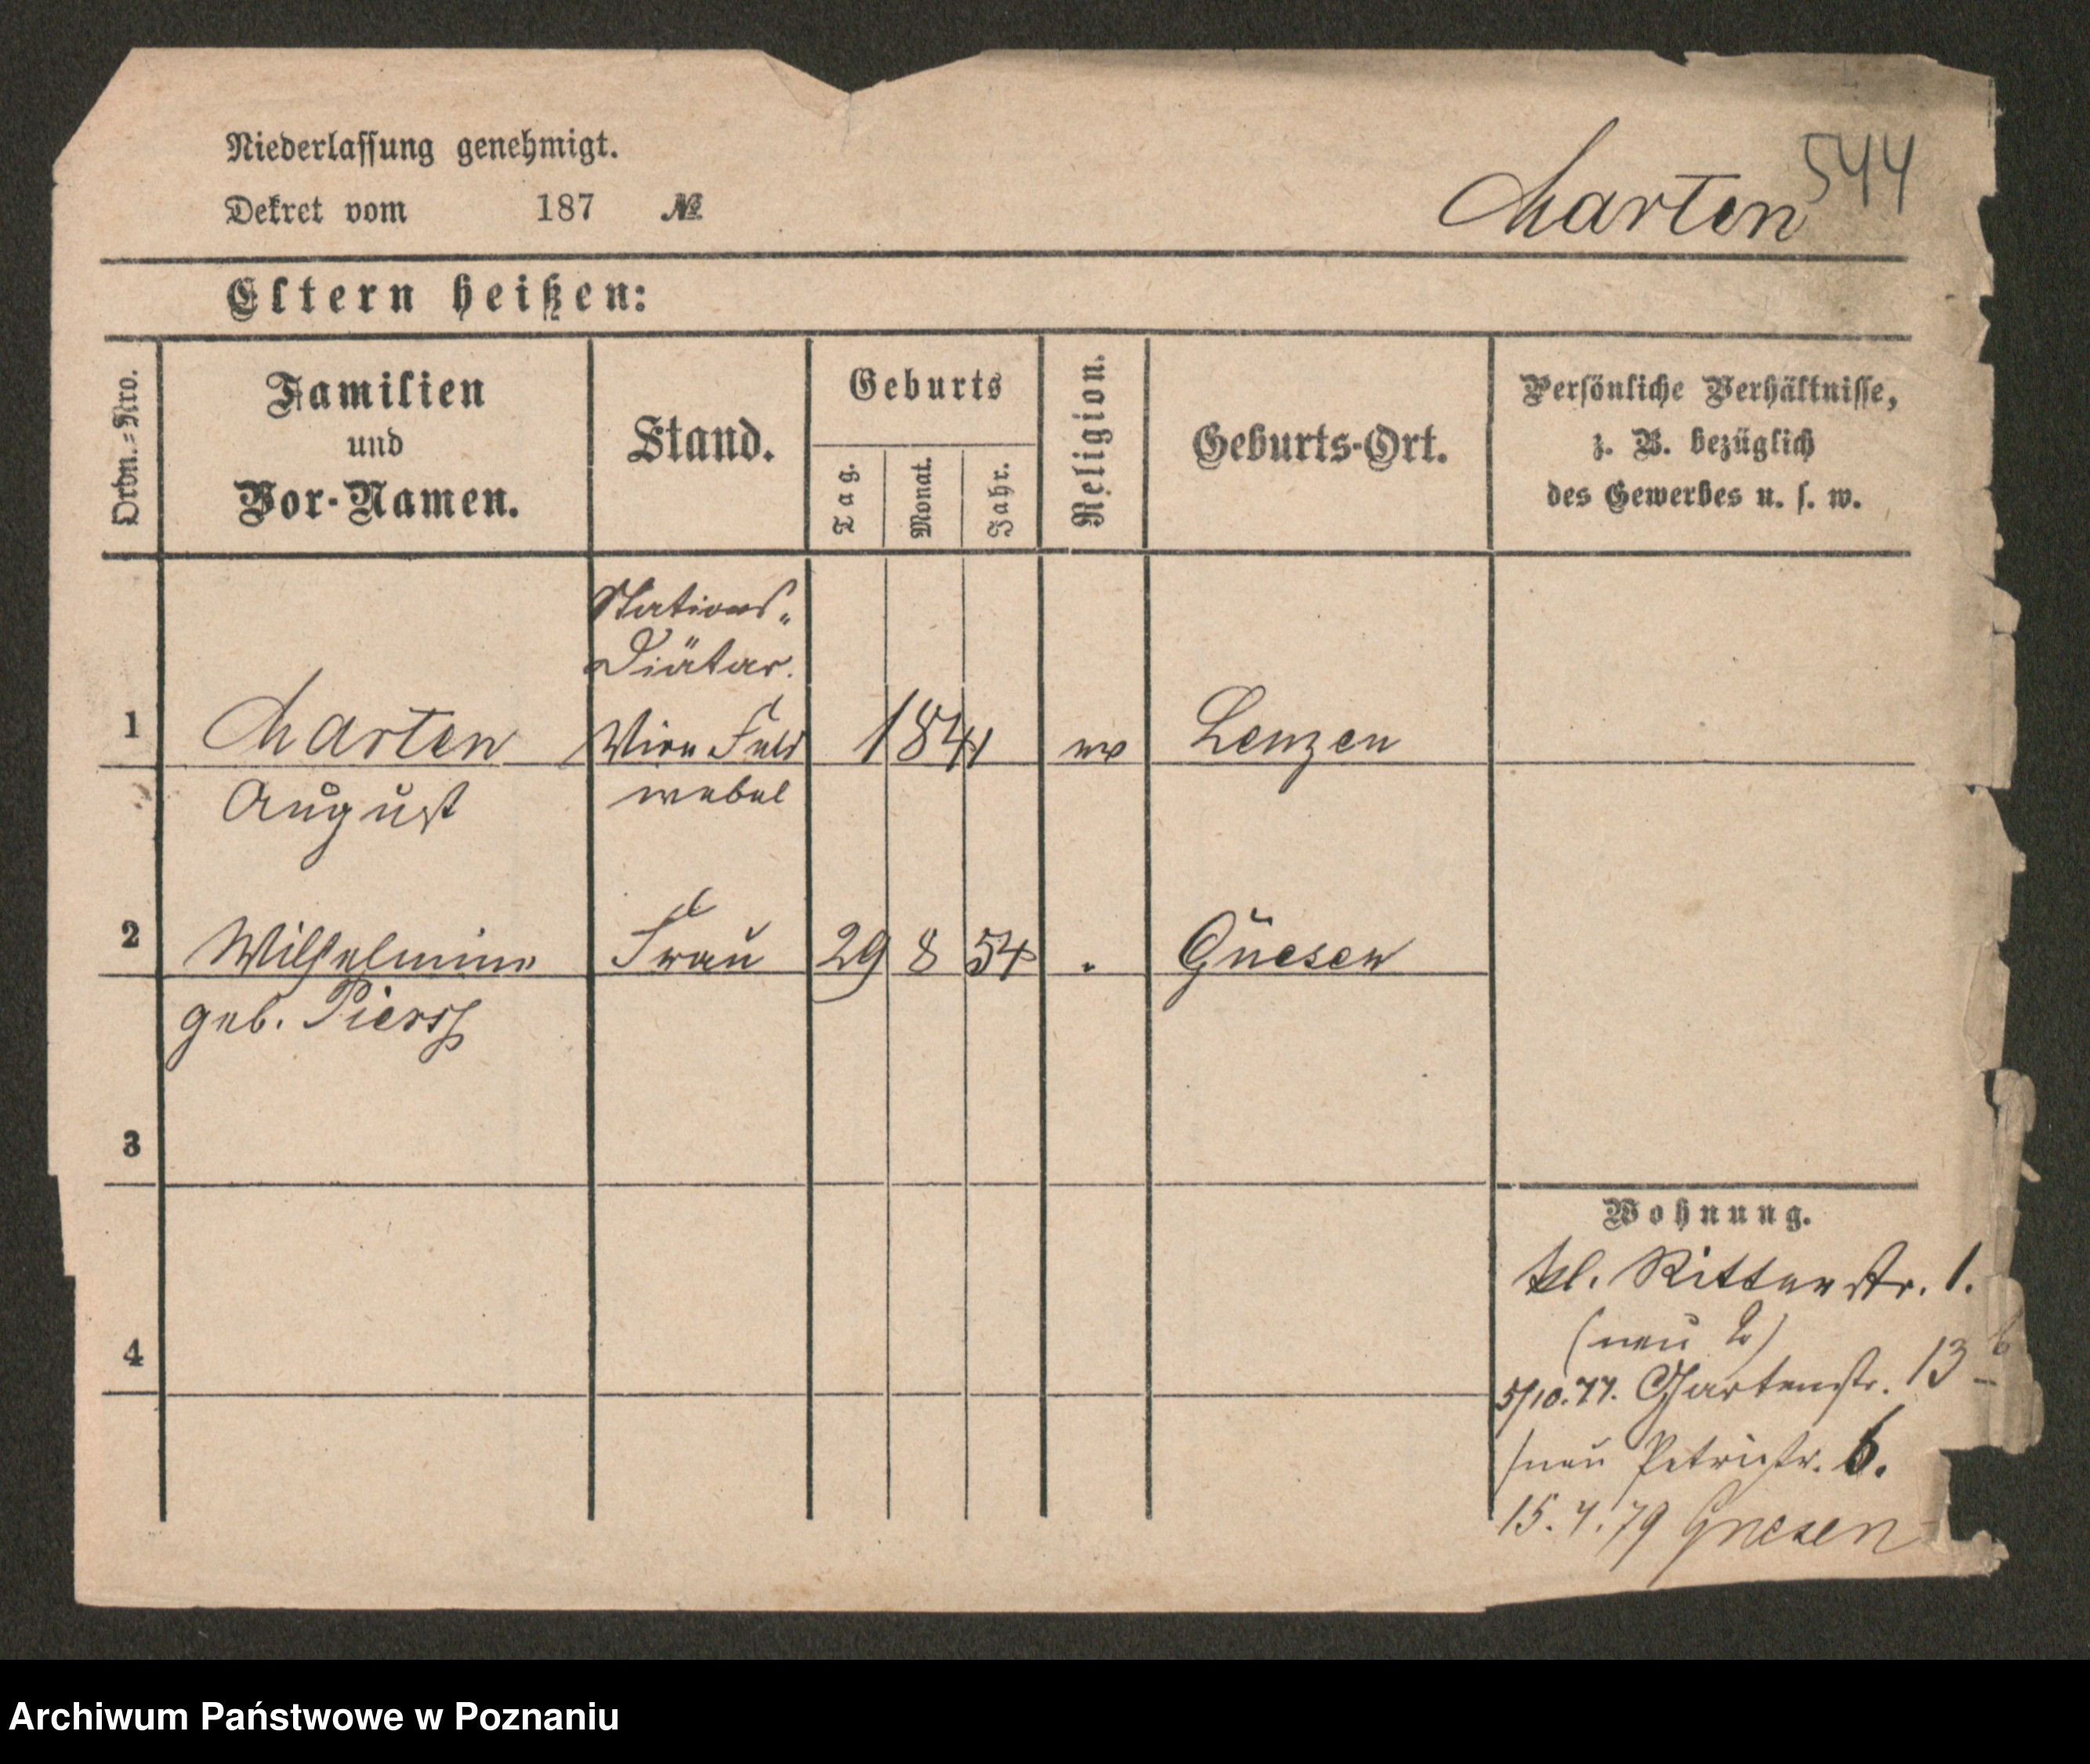 Niederlassung genehmigt.
Dekret vom 187 №
Marten 544
Eltern heißen:
Ordn.=Nro.
Familien
und
Vor-Namen.
Stand.
Geburts
Tag.
Monat.
Jahr.
Religion.
Geburts-Ort.
Persönliche Verhältnisse,
z. B. bezüglich
des Gewerbes u. s. w.
Stations-
Diätar.
1 Marten Vice Feld 1841 ev Lenzen
August webel
2 Wilhelmine Frau 29 8 54 " Gnesen
geb. Piersch
3
Wohnung.
kl. Ritterstr. 1.
(neu 2)
4
5/10.77. Gartenstr. 13 b
/neu Petristr. 6.
15.4.79 Gnesen
Archiwum Państwowe w Poznaniu